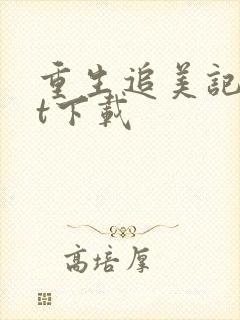 重生追美記
t下載
高培厚